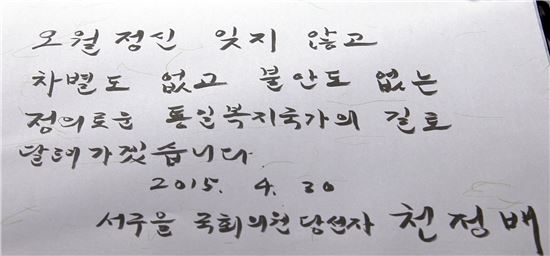 오월정신 잊지 않고
차별도 없고 불안도 없는
정의로운 통일복지국가의 길로
달려가겠습니다
2015. 4. 30
서구을 국회의원 당선자 천정배